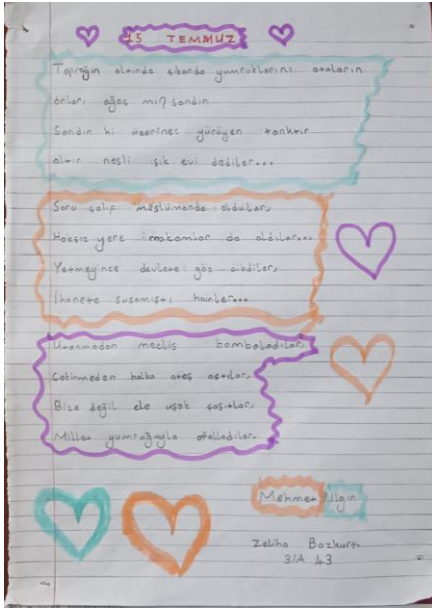 15 TEMMUZ
Toprağın altında çıkanda yumruklarını ataların
onları ağaç mı? sandın
Sandın ki üzerine yürüyen tanktır
altın nesli ışık evi dediler...
Soru çalıp müslümanda oldular,
Haksız yere makamlar da aldılar...
Yetmeyince devlete göz diktiler,
İhanete susamıştı hainler...
Utanmadan meclis bombaladılar,
Çekinmeden halka ateş açtılar,
Bize değil ele uşak çaşıtlar,
Millet yumruğuyla afalladılar.
Mehmet Ilgın
Zeliha Bozkurt
3/A 43